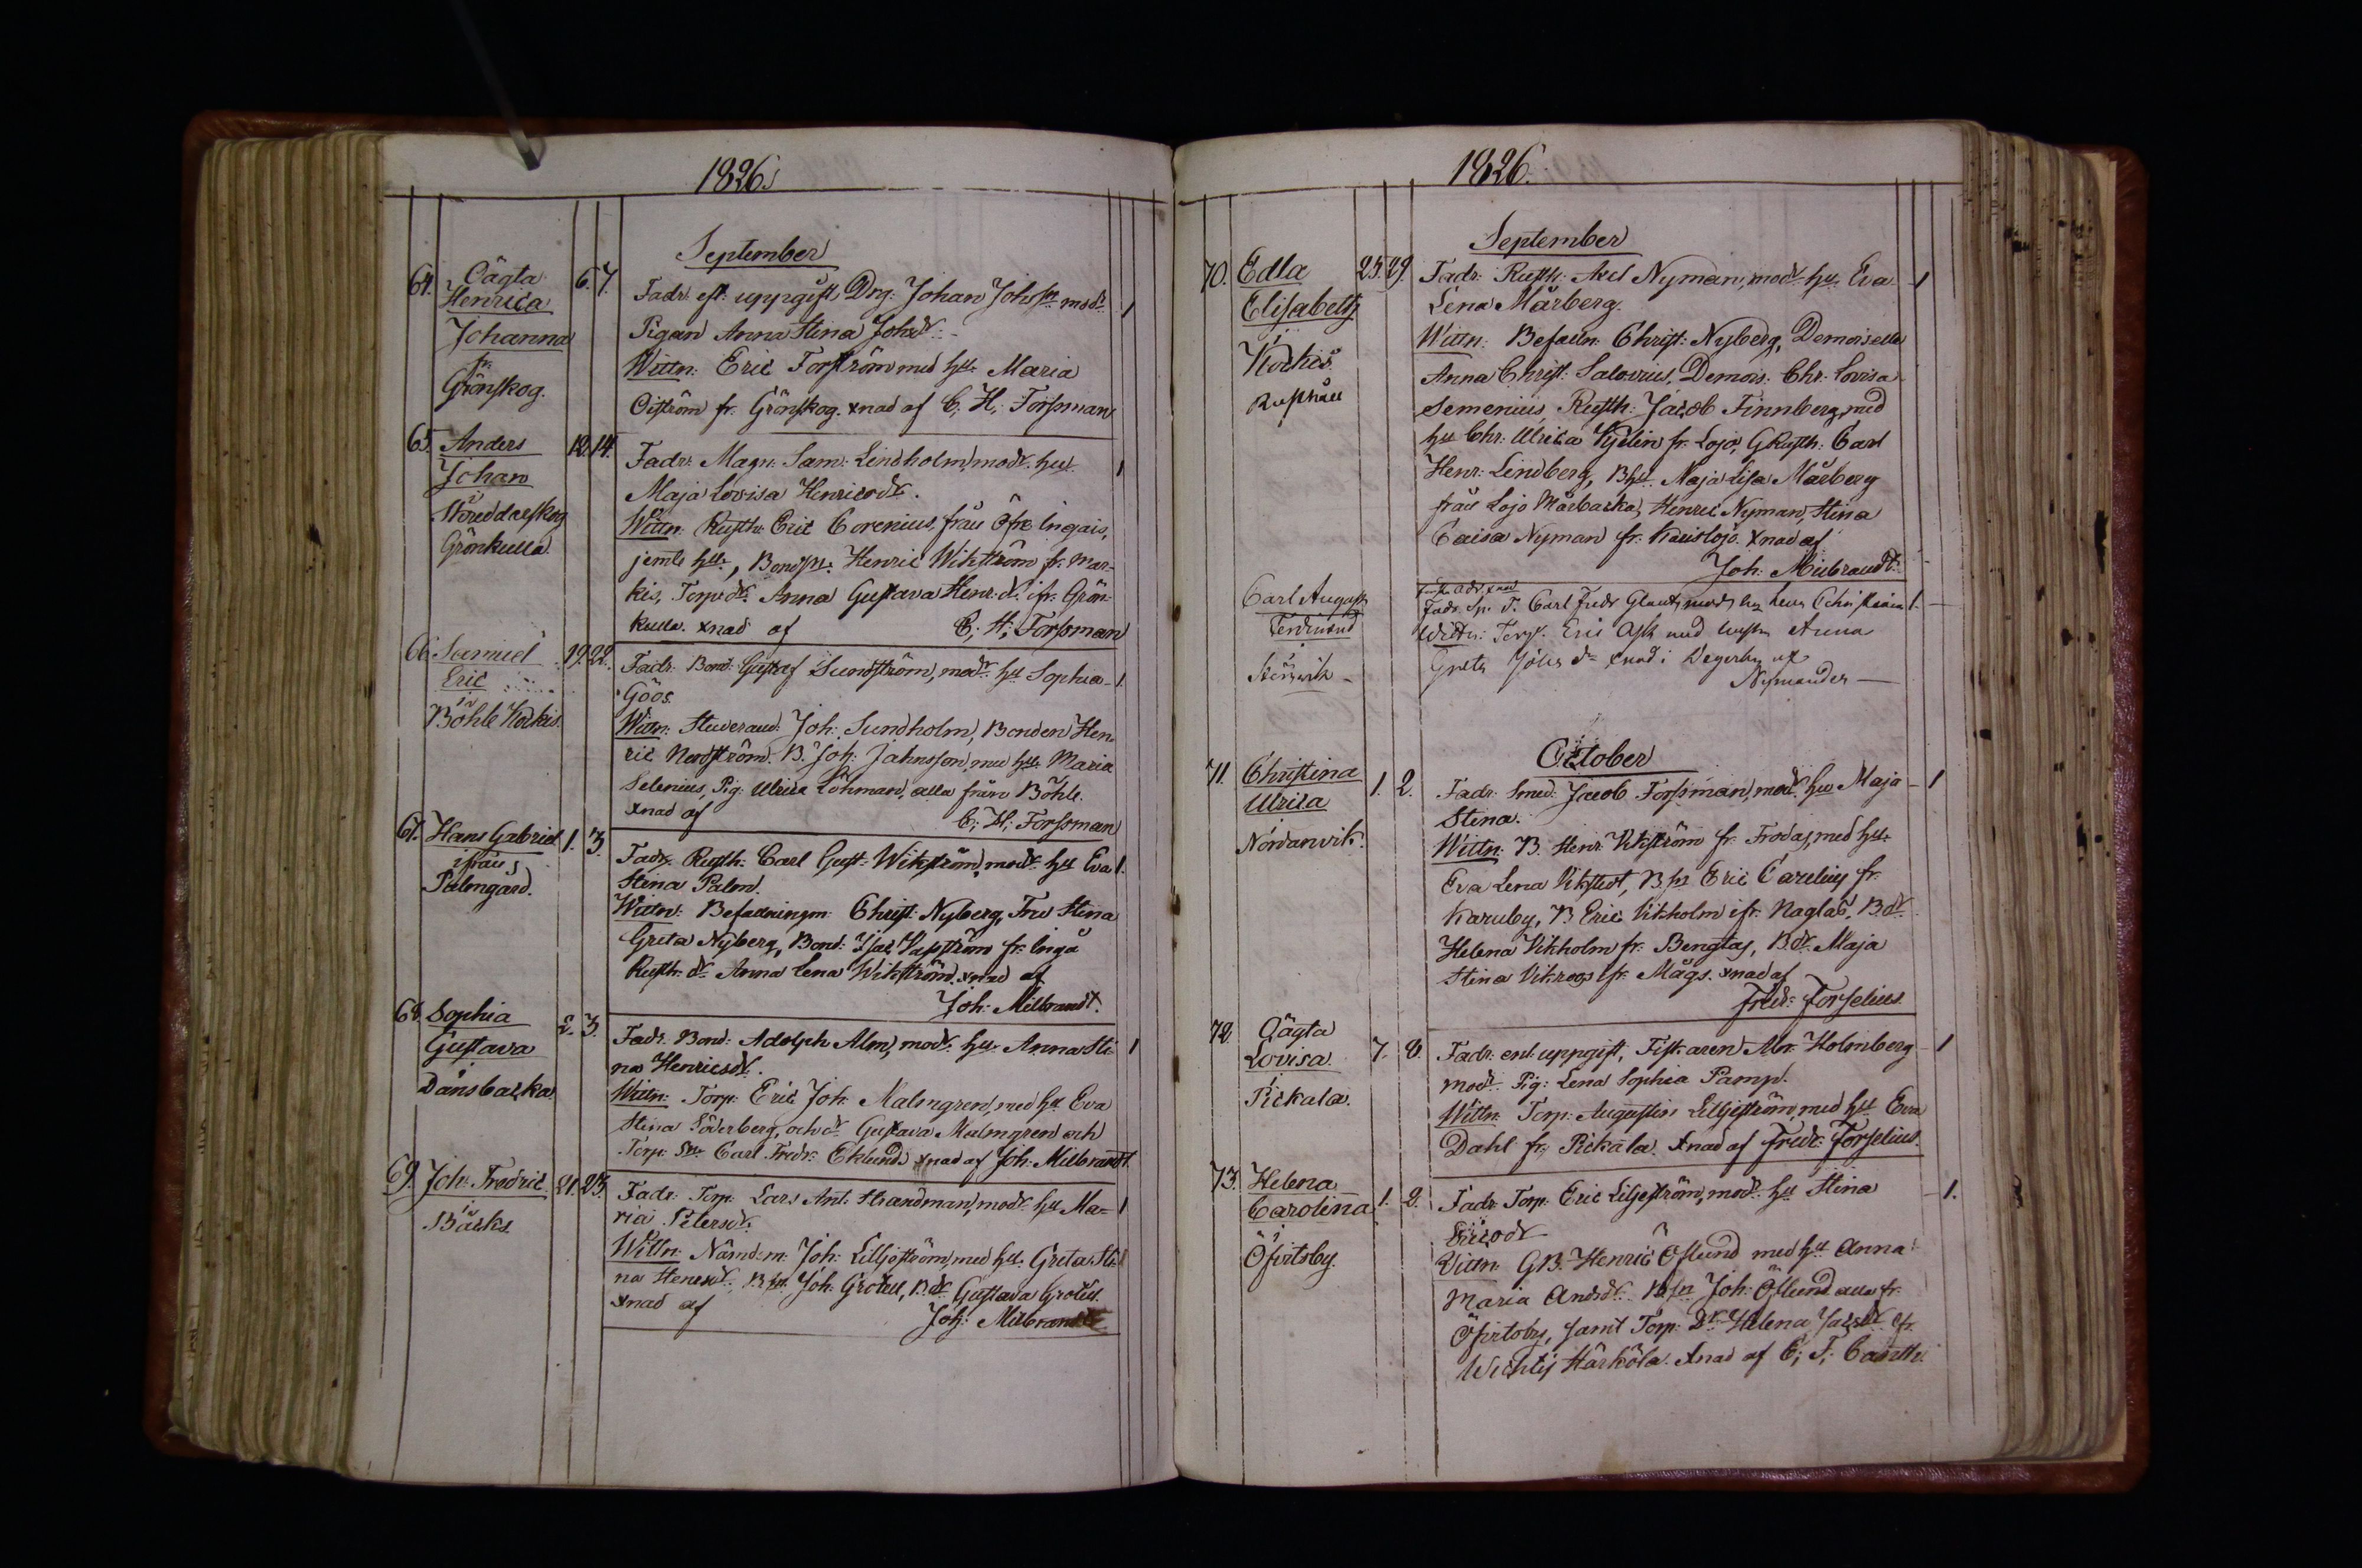 1826.
September
64. Oägta 6. 7.
Henrica
Johanna
fr.
Grönskog.
Fadr. eft. uppgift Drg. Johan Johssn modr. 1
Pigan Anna Stina Johsdr.
Wittn: Eric Forström med hu. Maria
Öiström fr. Grönskog. xnad af C. H. Forssman
65. Anders 12. 14.
Johan
i
Skreddarskog
Grönkulla
Fadr. Magn. Sam. Lindholm, modr. hu. 1
Maja Lovisa Henricsdr.
Wittn: Rusth. Eric Corenius, från Öfre Ingais,
jemte hu., Bondsn. Henric Wikström fr. Mar-
kis, Torpdr. Anna Gustava Henr. dr. ifr. Grön-
kulla. xnad af C. H. Forssman
66. Samuel 19. 22.
Eric
i
Böhle Kockis.
Fadr. Bond. Gustaf Sundström, modr. hu Sophia 1.
Göös.
Wittn: Stuverand. Joh: Sundholm, Bonden Hen-
ric Nordström. B. Joh: Jahnsson, med hu. Maria
Selenius, Pig. Ulrica Löhman, alla från Böhle.
xnad af C. H. Forssman
67. Hans Gabriel 1. 3.
ifrån
Palmgård.
Fadr. Rusth. Carl Gust. Wikström, modr. hu Eva 1.
Stina Palm.
Wittn: Befallningsm. Christ. Nyberg, Fru Stina
Greta Nyberg, Bond. Isac fr. Ingå
Rusth. dr. Anna Lena Wikström. xnad af
Joh: Milbrandt.
68. Sophia 2. 3.
Gustava
i
Dansbacka
Fadr. Bond: Adolph Alm, modr. hu. Anna Sti- 1
na Henricsdr.
Wittn: Torp. Eric Joh: Malmgren, med hu Eva
Stina Söderberg, och dr. Gustava Malmgren och
Torp. Sn. Carl Fredr. Eklund xnad af Joh: Milbrandt
69. Joh: Fredric 21. 23.
i
Bäcks
Fadr. Torp. Lars Ant. Strandman, modr. hu Ma- 1
ria Petersdr.
Wittn: Nämdem. Joh: Lilljeström, med hu. Greta Sti-
na Henricsdr. B.sn. Joh: Grotell, B.dr. Gustava Grotell.
xnad af Joh: Milbrandt
1826.
September
70. Edla 25. 29.
Elisabeth
i
Kockis
Rusthåll
Fadr. Rusth: Axel Nyman, modr. hu. Eva 1
Lena Mårberg.
Wittn: Befalln. Christ: Nyberg, Demoiselle
Anna Christ: Salovius, Demois: Chr. Lovisa
Semenius, Rusth: Jacob Finnberg, med
hu Chr. Ulrica fr. Lojo, GRusth: Carl
Henr. Lindberg, Bhu. Maja Lisa Mårberg
från Lojo Mårbacka, Henric Nyman, Stina
Caisa Nyman fr. Karislojo. xnad af
Joh: Milbrandt.
Carl August
Ferdinand
Störsvik
Fadr. Sp. T. Carl Fredr Glantz, modr. hu Lena Christina 1.
Wittn: Torp. Eric Ask med hustru Anna
Greta Johs dr xnad i Degerby af
Nymander
October
71. Christina 1. 2.
Ulrica
i
Nordanvik.
Fadr. Smed. Jacob Forssman, modr. hu Maja 1
Stina.
Wittn: B. Henr. Vikström fr. Frodas, med hu.
Eva Lena Vikstedt, B.sn Eric Carelius fr.
Karuby, B. Eric Vikholm ifr. Naglas, B.dr.
Helena Vikholm fr. Bengtas, B.dr. Maja
Stina Vikroos ifr. Mägs. xnad af
Fredr: Forselius.
72. Oägta 7. 8.
Lovisa
i
Pickala.
Fadr. enl. uppgift, Fiskaren Abr. Holmberg 1
modr. Pig: Lena Sophia Pamp.
Wittn: Torp: Augustin Lilljeström med hu Eva
Dahl fr. Pickala. xnad af Fredr. Forselius.
73. Helena 1. 2.
Carolina
i
Öfvitsby.
Fadr. Torp. Eric Liljeström, modr. hu Stina 1.
Ericsdr
Vittn: GB. Henric Öflund med hu Anna
Maria Andrsdr. B.sn Joh: Öflund alla fr.
Öfvitsby, samt Torp. Dr. Helena Jacsdr. ifr.
Wichtis Härköla. xnad af C. F. Canth.